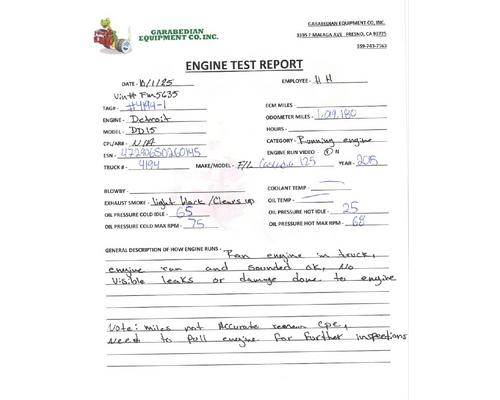 GARABEDIAN
EQUIPMENT CO. INC.
GARABEDIAN EQUIPMENT CO, INC.
3395 S MALAGA AVE FRESNO, CA 93725
559-243-7563
ENGINE TEST REPORT
DATE - 10/1/25 EMPLOYEE - H H
Vin# Fm5635
TAG# #4194-1 ECM MILES -
ENGINE - Detroit ODOMETER MILES - 1,019,180
MODEL - DD15 HOURS -
CPL/AR# - N/A CATEGORY - Running engine
ESN - 472906S0260145 ENGINE RUN VIDEO - Y N
TRUCK # - 4194 MAKE/MODEL - F/L Cascadia 125 YEAR - 2015
BLOWBY - COOLANT TEMP -
EXHAUST SMOKE - light black / Clears up OIL TEMP -
OIL PRESSURE COLD IDLE - 65 OIL PRESSURE HOT IDLE - 25
OIL PRESSURE COLD MAX RPM - 75 OIL PRESSURE HOT MAX RPM - 68
GENERAL DESCRIPTION OF HOW ENGINE RUNS - Ran engine in truck,
engine ran and sounded ok, No
Visible leaks or damage done to engine
Note: miles not Accurate reman Cpc,
need to pull engine for further inspections